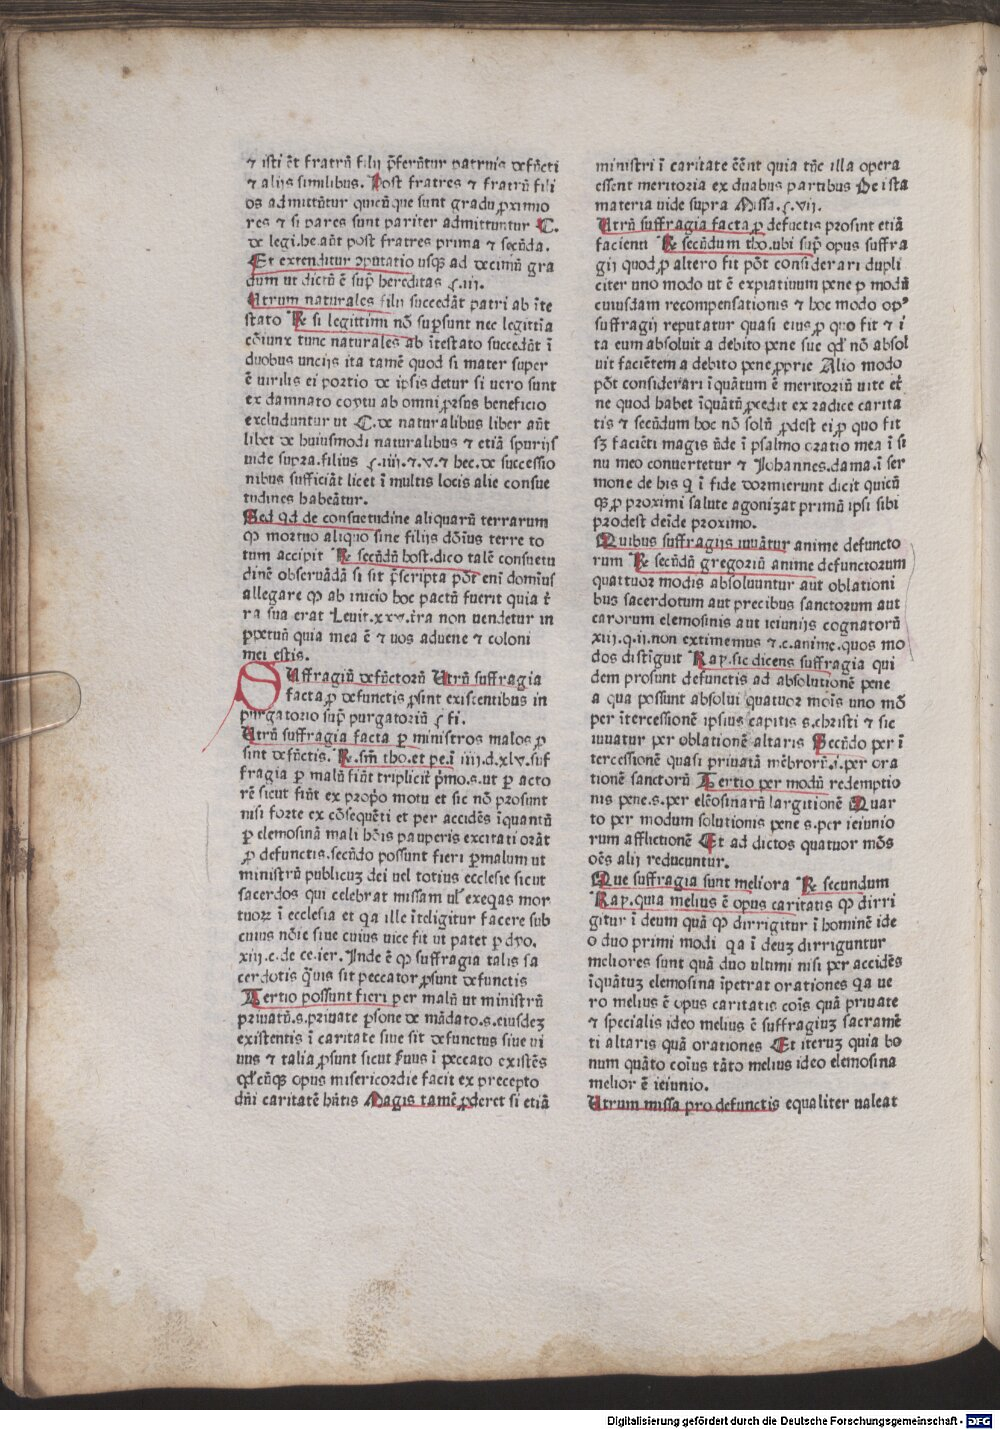 ⁊ isti ēt fratrū filij p̄ferūtur patruis defūcti
⁊ alijs similibus. Post fratres ⁊ fratrū fili
os admittūtur quicūque sunt gradu ꝓximio
res ⁊ si pares sunt pariter admittuntur C.
de legi.he.aūt post fratres prima ⁊ secūda.
Et extenditur ꝯputatio usq̄ ad decimū gra
dum ut dictū ē sup̄ hereditas ꝭ.iij.
Utrum naturales filij succedāt patri ab īte
stato R̄ si legittimi nō sup̄sunt nec legittīa
cōiunx tunc naturales ab ītestato succedūt ī
duobus uncijs ita tamē quod si mater super
ē uirilis ei portio de ipsis detur si uero sunt
ex damnato coytu ab omni ꝓrsus beneficio
excluduntur ut C.de naturalibus liber aūt
libet de huiusmodi naturalibus ⁊ etiā spurijs
uide supra.filius ꝭ.iiij.⁊.v.⁊ hec.de successio
nibus sufficiāt licet ī multis locis alie consue
tudines habeātur.
Sed qd̄ de consuetudine aliquarū terrarum
ꝙ mortuo aliquo sine filijs dōīus terre to
tum accipit R̄ secūdū host.dico talē consuetu
dinē obseruādā si sit p̄scripta pōt enī domīus
allegare ꝙ ab inicio hoc pactū fuerit quia t̄
ra sua erat Leuit.xxv.t̄ra non uendetur in
ꝑpetuū quia mea ē ⁊ uos aduene ⁊ coloni
mei estis.
SUffragiū defūctorū Utrū suffragia
facta ꝓ defunctis ꝓsint existentibus in
purgatorio sup̄ purgatoriū ꝭ fi.
Utrū suffragia facta ꝑ ministros malos ꝓ
sint defūctis. R̄.sm̄ tho.et pe.ī iiij.d.xlv.suf
fragia ꝑ malū fiūt triplicit̄ p̄mo.s.ut ꝑ acto
rē sicut fiūt ex prop̄o motu et sic nō prosunt
nisi forte ex cōsequēti et per accidēs īquantū
ꝑ elemosinā mali hōis pauperis excitati orāt
ꝓ defunctis.secūdo possunt fieri ꝑ malum ut
ministrū publicuꝫ dei uel totius ecclesie sicut
sacerdos qui celebrat missam ul̄ exeqas mor
tuoꝝ ī ecclesia et qa ille īteligitur facere sub
cuius nōie siue cuius uice fit ut patet ꝑ dyo.
xiij.c.de ce.ier. Inde ē ꝙ suffragia talis sa
cerdotis q̄uis sit peccator ꝓsunt defunctis
Tertio possunt fieri per malū ut ministrū
priuatū.s.priuate ꝑsone de mādato.s.eiusdeꝫ
existentis ī caritate siue sit defunctus siue ui
uus ⁊ talia ꝓsunt sicut s̄uus ī peccato existēs
qd̄cūqꝫ opus misericordie facit ex precepto
dn̄i caritatē hn̄tis Magis tamē ꝓderet si etiā
ministri ī caritate eēnt quia tūc illa opera
essent meritoria ex duabus partibus De ista
materia uide supra Missa.ꝭ.vij.
Utrū suffragia facta ꝓ defuctis prosint etiā
facienti R̄ secūdum tho.ubi sup̄ opus suffra
gij quod ꝓ altero fit pōt considerari dupli
citer uno modo ut ē expiatiuum pene ꝑ modū
cuiusdam recompensationis ⁊ hoc modo opꝰ
suffragij reputatur quasi eius ꝓ quo fit ⁊ i
ta eum absoluit a debito pene sue qd̄ nō absol
uit faciētem a debito pene ꝓprie Alio modo
pōt considerari īquātum ē meritoriū uite et̄
ne quod habet īquātū ꝓcedit ex radice carita
tis ⁊ secūdum hoc nō solū ꝓdest ei ꝓ quo fit
sꝫ faciēti magis ūde ī psalmo oratio mea ī si
nu meo conuertetur ⁊ Johannes.dama.ī ser
mone de his q̄ ī fide dormierunt dicit quicū
qꝫ ꝓ proximi salute agonizat primū ipsi sibi
prodest deīde proximo.
Quibus suffragijs iuuātur anime defuncto
rum R̄ secūdū gregoriū anime defunctorum
quattuor modis absoluuntur aut oblationi
bus sacerdotum aut precibus sanctorum aut
carorum elemosinis aut ieiunijs cognatorū
xiij.q.ij.non extimemus ⁊.c.anime.quos mo
dos distīguit Ray.sic dicens suffragia qui
dem prosunt defunctis ad absolutionē pene
a qua possunt absolui quatuor moīs uno mō
per ītercessionē ipsius capitis s.christi ⁊ sic
iuuatur per oblationē altaris Secūdo per ī
tercessionē quasi priuatā mēbrorū.i.per ora
tionē sanctorū Tertio per modū redemptio
nis pene.s.per elēosinarū largitionē Quar
to per modum solutionis pene s.per ieiunio
rum afflictionē Et ad dictos quatuor mōs
oēs alij reducuntur.
Que suffragia sunt meliora R̄ secundum
Ray.quia melius ē opus caritatis ꝙ dirri
gitur ī deum quā ꝙ dirrigitur ī hominē ide
o duo primi modi qa ī deuꝫ dirriguntur
meliores sunt quā duo ultimi nisi per accidēs
īquātuꝫ elemosina īpetrat orationes qa ue
ro melius ē opus caritatis coīs quā priuate
⁊ specialis ideo melius ē suffragiuꝫ sacramē
ti altaris quā orationes Et iteruꝫ quia bo
num quāto coīus tāto melius ideo elemosina
melior ē ieiunio.
Utrum missa pro defunctis equaliter ualeat
Digitalisierung gefördert durch die Deutsche Forschungsgemeinschaft - DFG